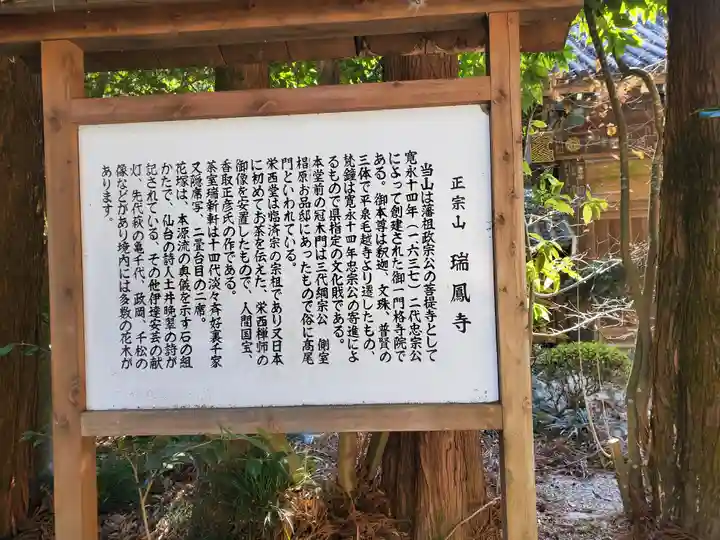 正宗山 瑞鳳寺
当山は藩祖政宗公の菩提寺として
寛永十四年（一六三七）二代忠宗公
によって創建された御一門格寺院で
ある。御本尊は釈迦、文珠、普賢の
三体で平泉毛越寺より遷したもの、
梵鐘は寛永十四年忠宗公の寄進によ
るもので県指定の文化財である。
本堂前の冠木門は三代綱宗公 側室
椙原お品邸にあったもので俗に高尾
門といわれている。
栄西堂は臨済宗の宗祖であり又日本
に初めてお茶を伝えた、栄西禅師の
御像を安置したもので、人間国宝、
香取正彦氏の作である。
茶室瑞新軒は十四代淡々斉好裏千家
又隠席写、二畳台目の二席。
花塚は、本源流の奥儀を示す石の組
かたで、仙台の詩人土井晩翠の詩が
記されている。その他伊達安芸の献
灯、先代萩の亀千代、政岡、千松の
像などがあり境内には多数の花木が
あります。